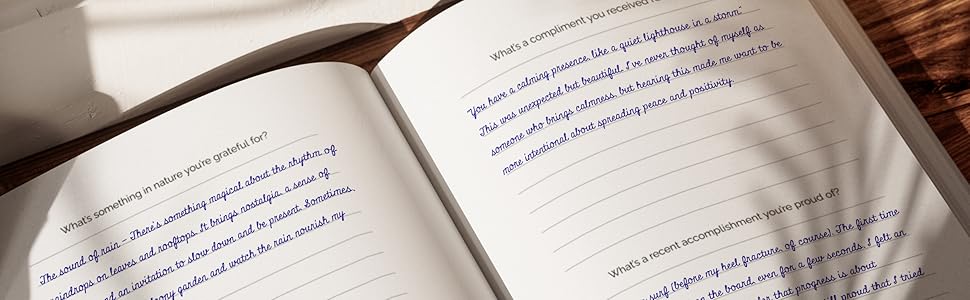 What's something in nature you're grateful for?
The sound of rain – There's something magical about the rhythm of
raindrops on leaves and rooftops. It brings nostalgia, a sense of
and an invitation to slow down and be present. Sometimes,
garden and watch the rain nourish my
What's a compliment you received
You have a calming presence, like a quiet lighthouse in a storm"
This was unexpected but beautiful. I've never thought of myself as
someone who brings calmness, but hearing this made me want to be
more intentional about spreading peace and positivity.
What's a recent accomplishment you're proud of?
surf (before my heel fracture, of course). The first time
the board, even for a few seconds, I felt an
that progress is about
proud that I tried